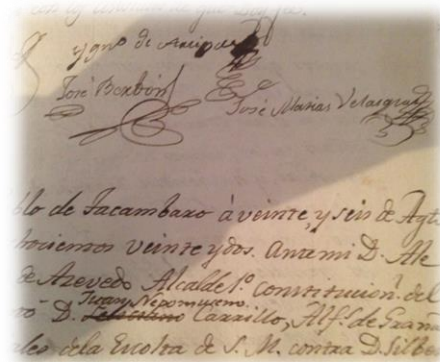 ygn.º de
José Borbón
José Marias Velasques
blo de Tacambaro à veinte, y seis de Agto
hocientos veinte y dos. Antemi D. Ale
de Azevedo Alcalde 1.º constitucion.l del
Juan Nepomuceno
D. Carrillo, Alf.s de Gran
les dela Escolta de S. M. contra D. Silb